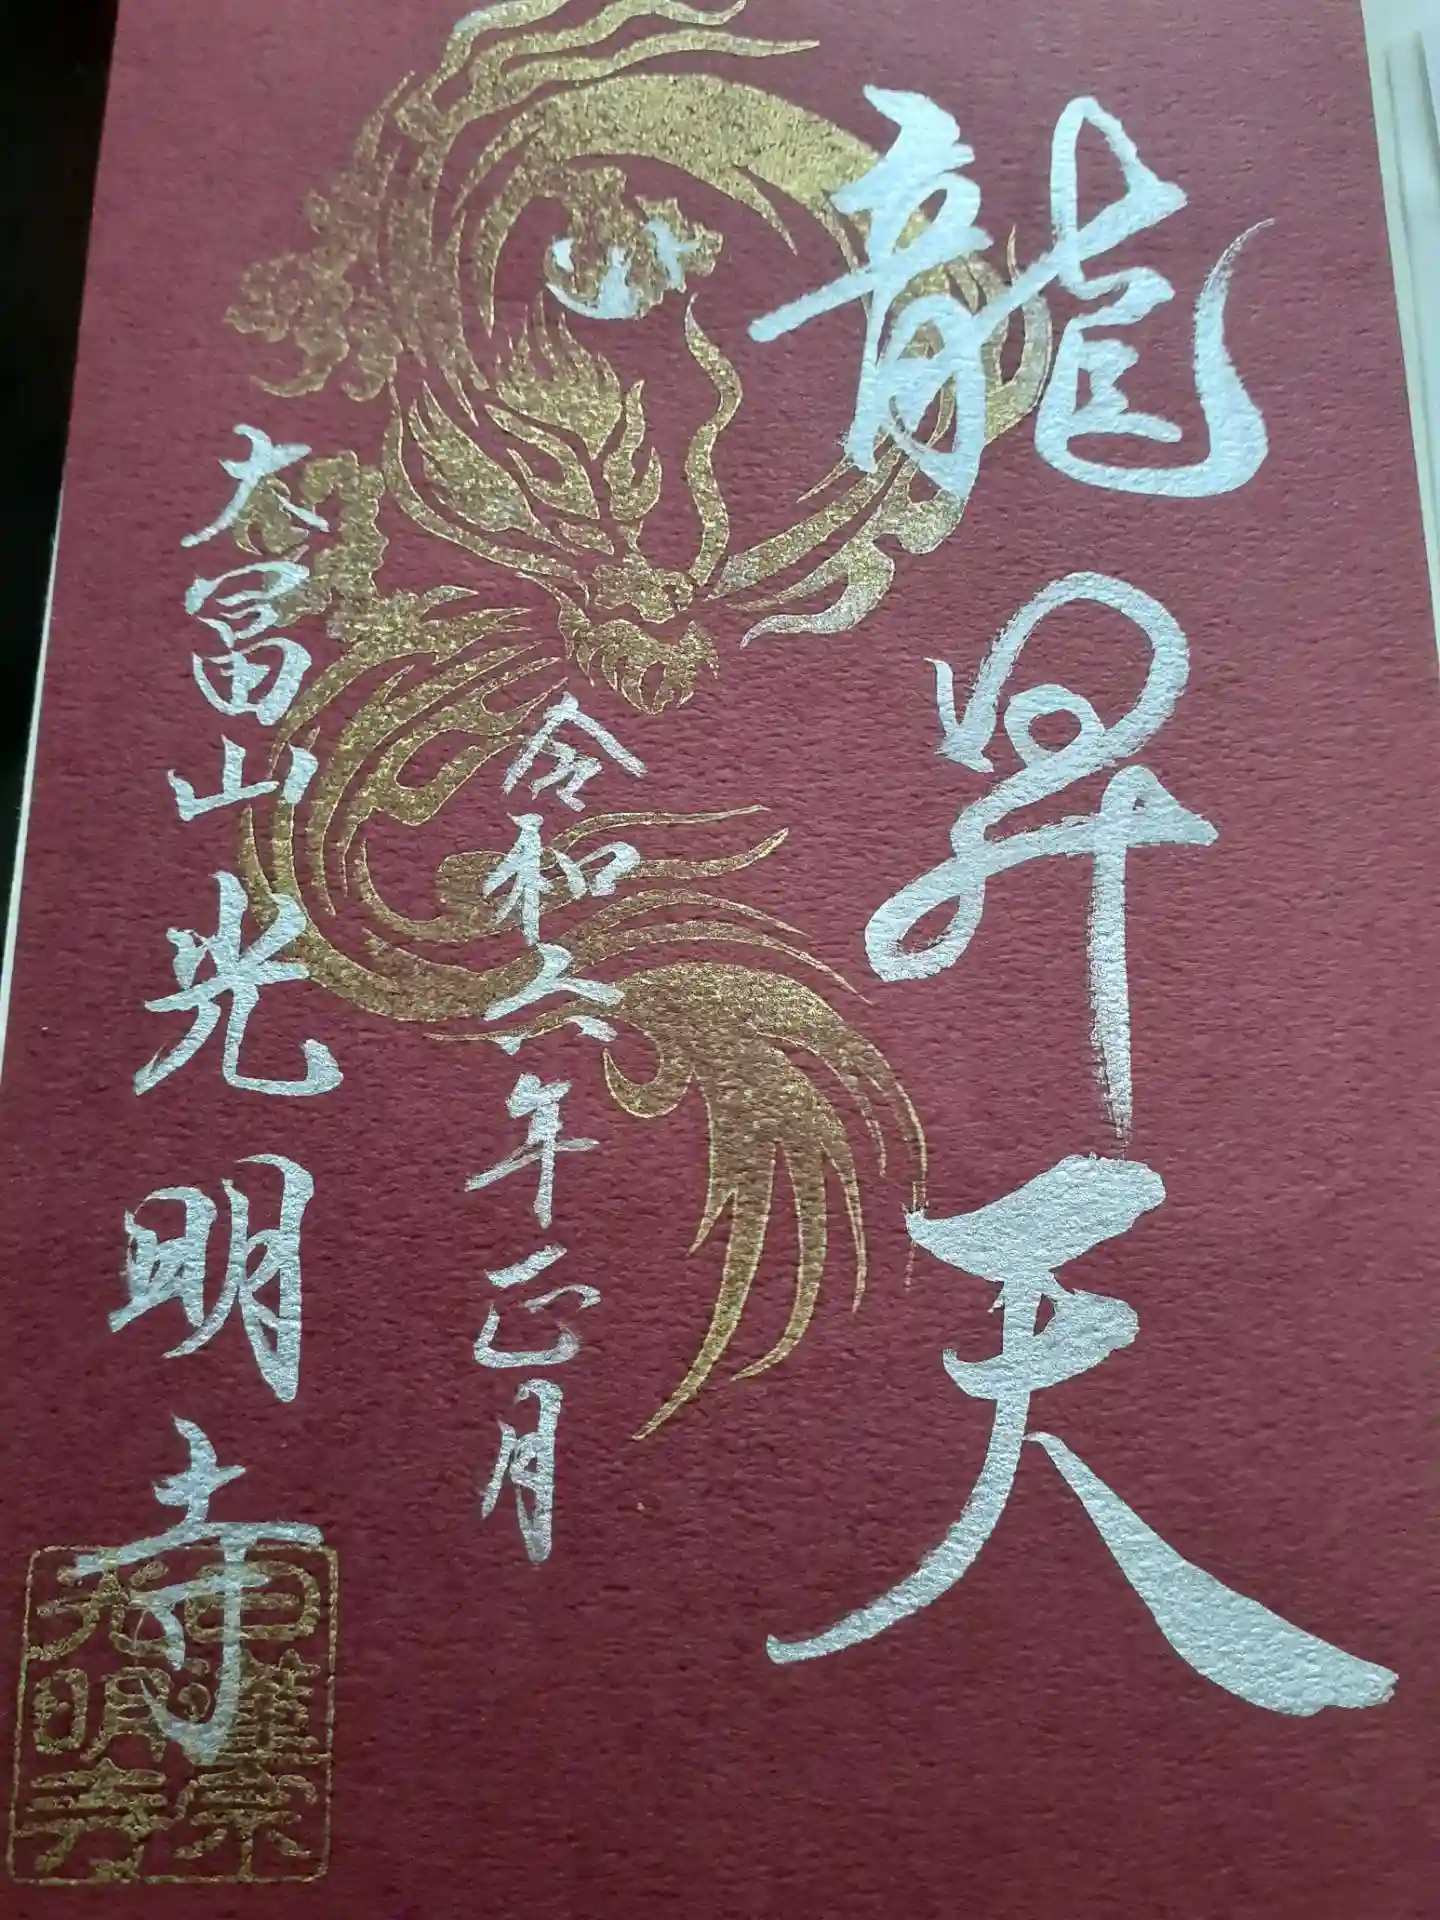 龍昇天
令和六年正月
大冨山光明寺
日蓮宗
光明寺